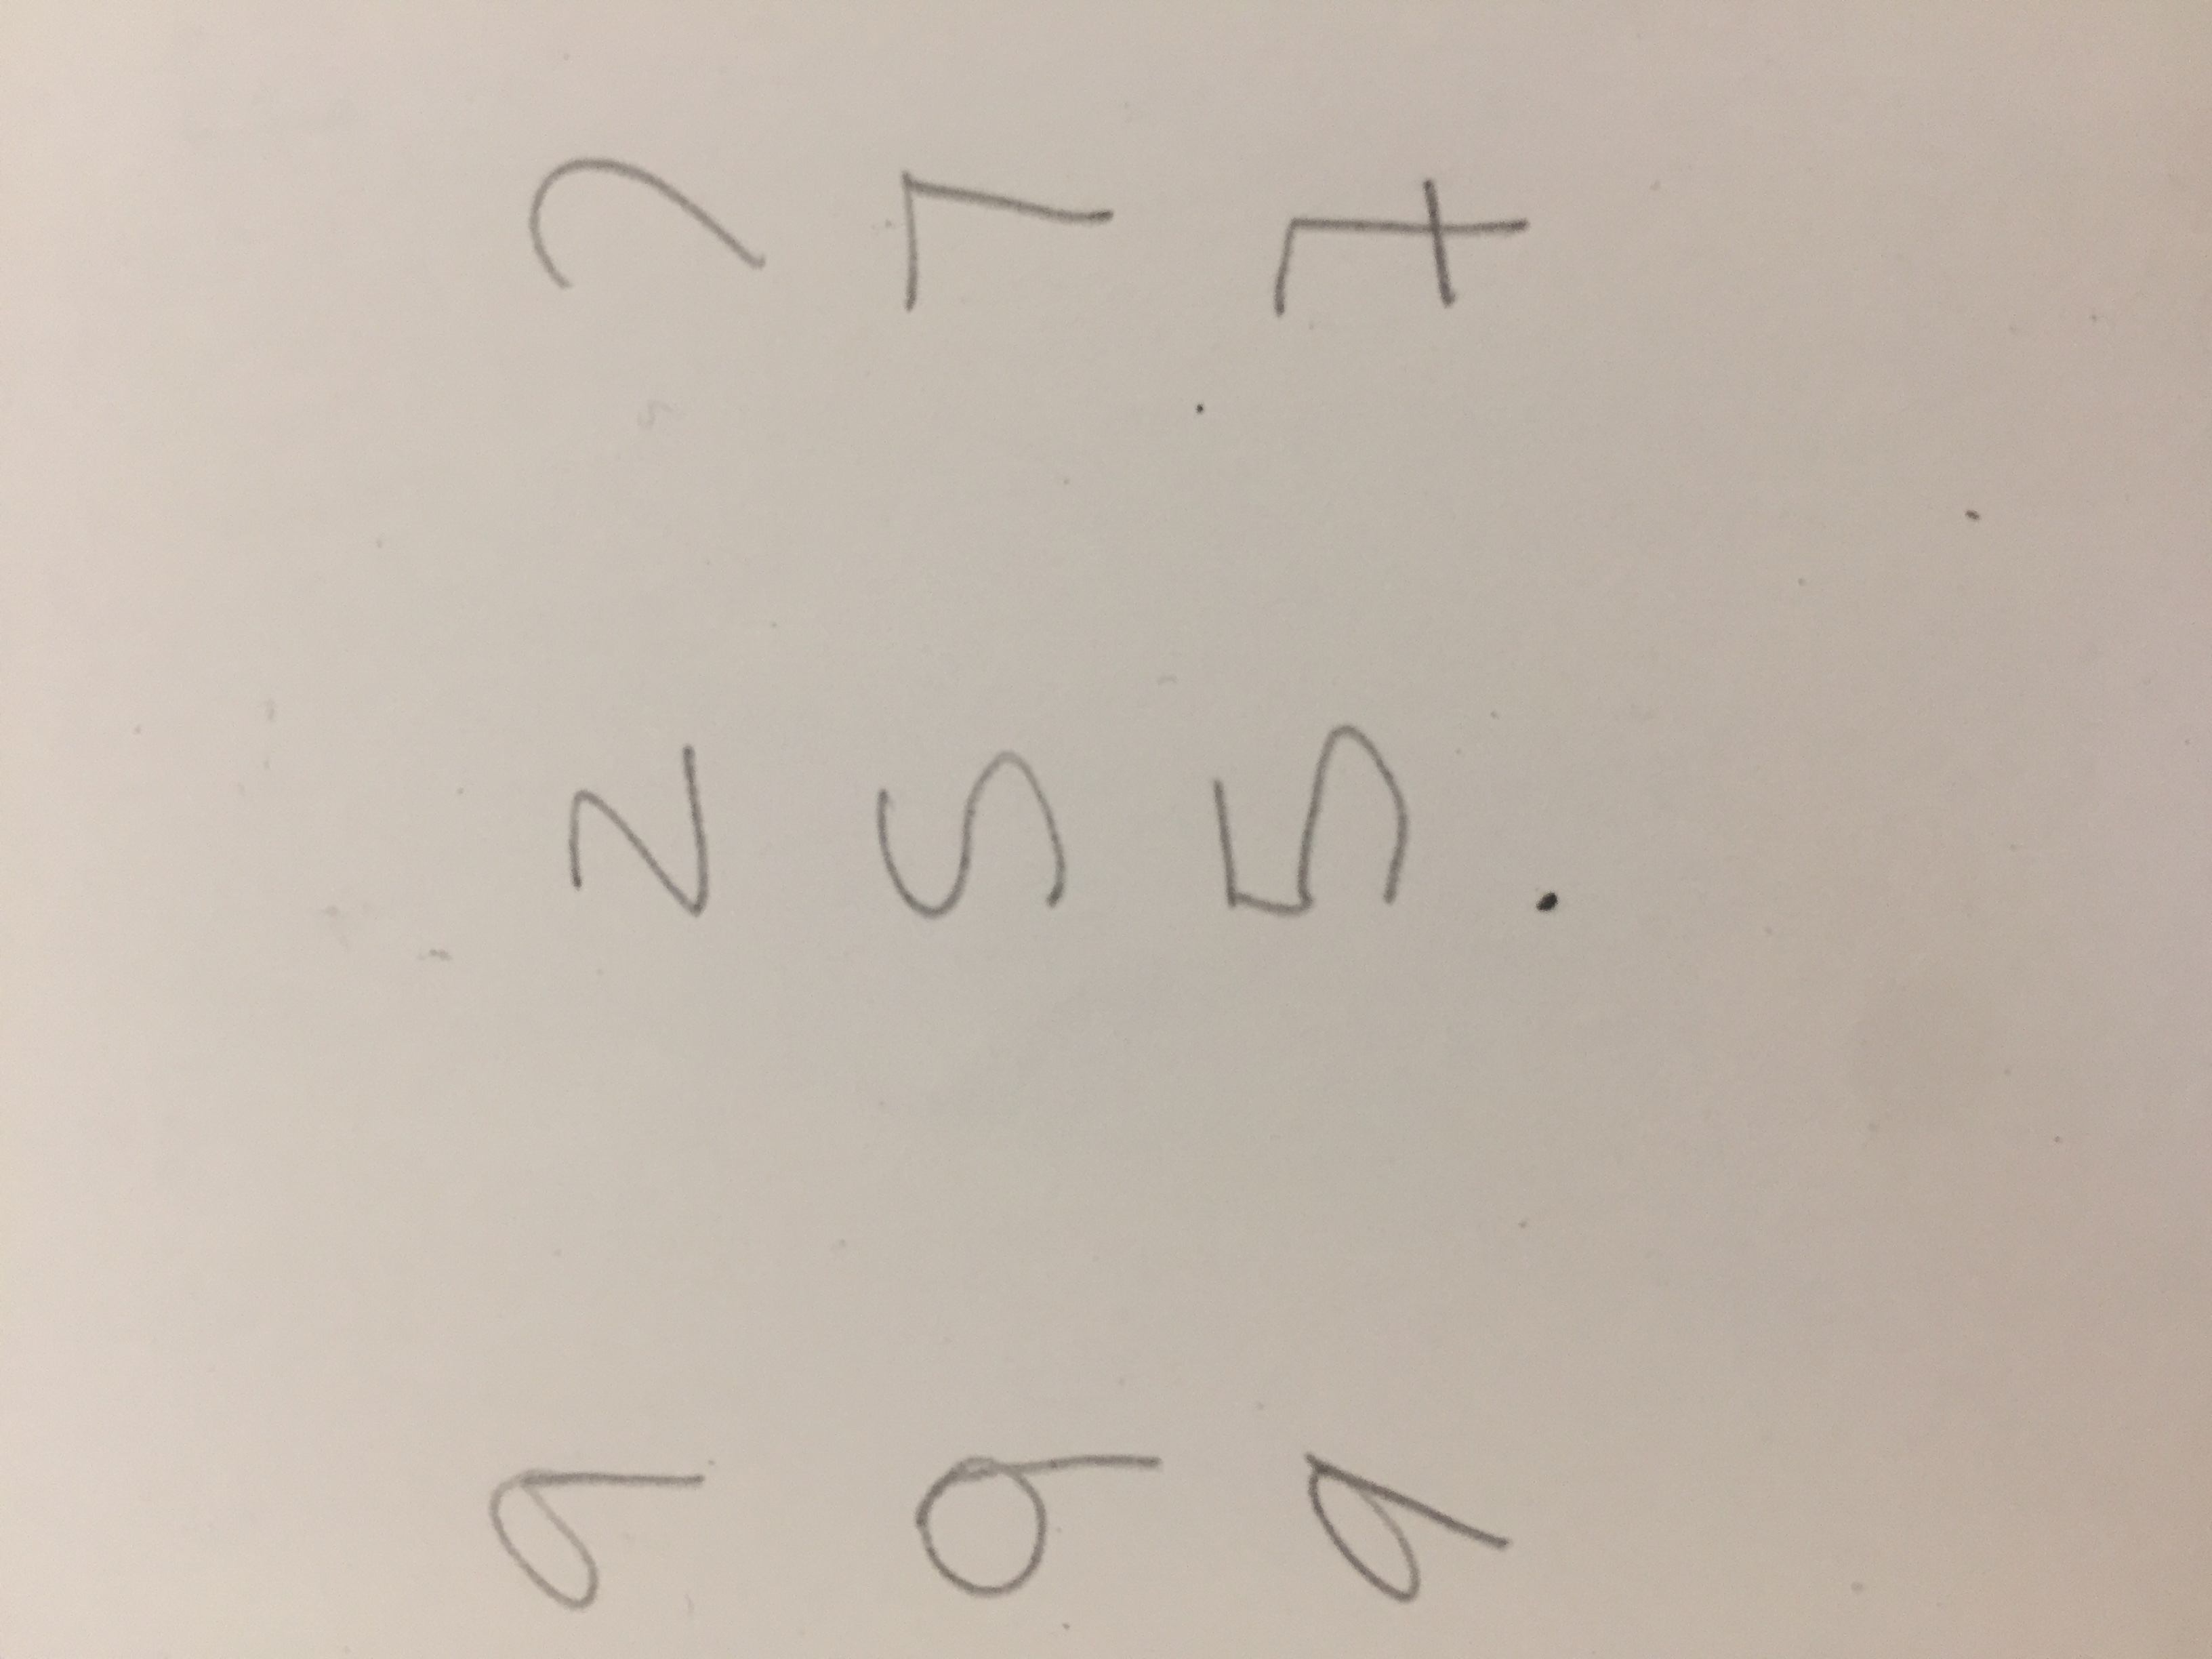 9 2 7
9 5 7
9 5 7